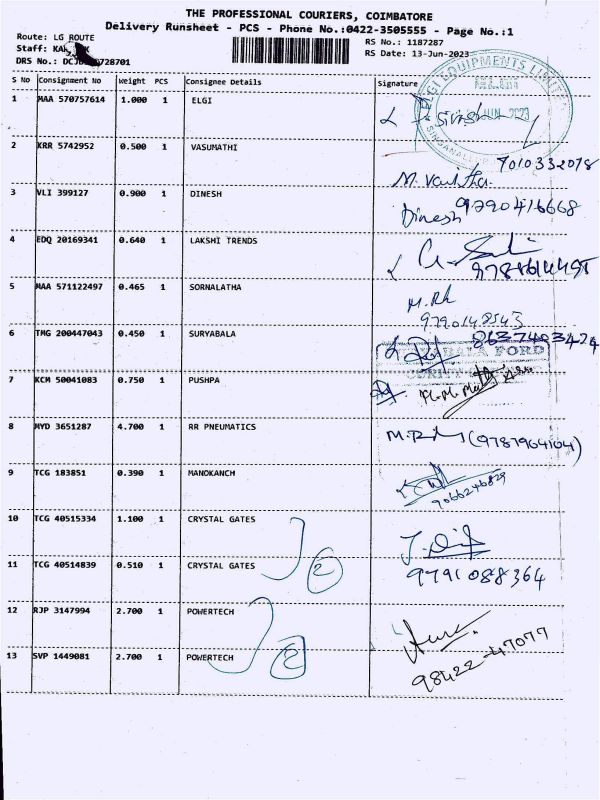 THE PROFESSIONAL COURIERS, COIMBATORE
Delivery Runsheet - PCS - Phone No.:0422-3505555 - Page No.:1
Route: LG ROUTE
RS No.: 1187287
Staff:
RS Date: 13-Jun-2023
DRS No.: 728701
S No Consignment No Weight PCS Consignee Details Signature
ELGI EQUIPMENTS LIMITED
1 MAA 570757614 1.000 1 ELGI
JUN 2023
2 KRR 5742952 0.500 1 VASUMATHI
7010332078
3 VLI 399127 0.900 1 DINESH
Dinesh 9790416668
4 EDQ 20169341 0.640 1 LAKSHI TRENDS
5 MAA 571122497 0.465 1 SORNALATHA
M.Rh
9790148543
6 TMG 200447043 0.450 1 SURYABALA
8637403424
FORD
7 KCM 50041083 0.750 1 PUSHPA
8 MYD 3651287 4.700 1 RR PNEUMATICS
(9787964104)
9 TCG 183851 0.390 1 MANOKANCH
9066246829
10 TCG 40515334 1.100 1 CRYSTAL GATES
11 TCG 40514839 0.510 1 CRYSTAL GATES
2
9791088364
12 RJP 3147994 2.700 1 POWERTECH
13 SVP 1449081 2.700 1 POWERTECH
2
98422-47077